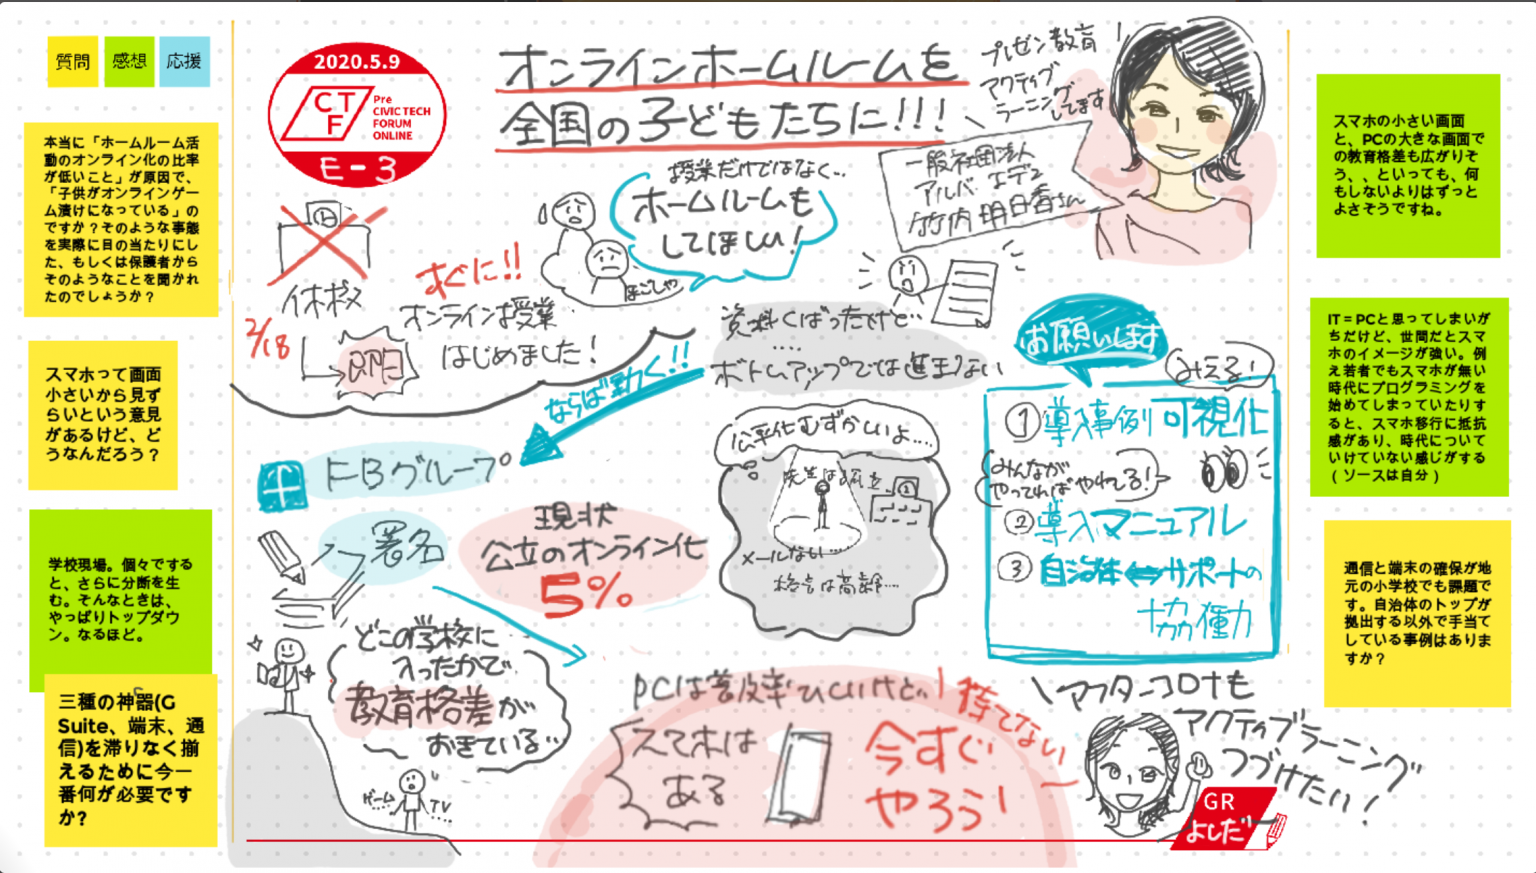 質問
感想
応援
本当に「ホームルーム活
動のオンライン化の比率
が低いこと」が原因で、
「子供がオンラインゲー
ム漬けになっている」の
ですか？そのような事態
を実際に目の当たりにし
た、もしくは保護者から
そのようなことを聞かれ
たのでしょうか？
スマホって画面
小さいから見ず
らいという意見
があるけど、ど
うなんだろう？
学校現場。個々でする
と、さらに分断を生
む。そんなときは、
やっぱりトップダウ
ン。なるほど。
三種の神器(G
Suite、端末、通
信)を滞りなく揃
えるために今一
番何が必要です
か？
2020.5.9
CTF
Pre
CIVIC TECH
FORUM
ONLINE
E-3
オンラインホームルームを
全国の子どもたちに!!!
プレゼン教育
アクティブ
ラーニング
してます
一般社団法人
アルバ・エデュ
竹内明日香さん
休校
2/18
即日
すぐに!!
オンライン授業
はじめました!
授業だけではなく..
ホームルームも
してほしい!
ほごしゃ
資料くばったけど…
....
ボトムアップでは進まない
ならば動く!!
FBグループ
署名
現状
公立のオンライン化
5%
公平化むずかしいよ....
先生は孤立
メールない....
校長は高齢...
お願いします
みえる!
①導入事例可視化
みんなが
やってればやれてる!
②導入マニュアル
③自治体⇔サポートの
協働
どこの学校に
入ったかで
教育格差が
おきている…
ゲーム
TV
PCは普及率ひくいけど!
スマホは
ある
待てない
今すぐ
やろう!
アフターコロナも
アクティブラーニング
つづけたい!
GR
よしだ
スマホの小さい画面
と、PCの大きな画面で
の教育格差も広がりそ
う、、といっても、何
もしないよりはずっと
よさそうですね。
IT＝PCと思ってしまいが
ちだけど、世間だとスマ
ホのイメージが強い。例
え若者でもスマホが無い
時代にプログラミングを
始めてしまっていたりす
ると、スマホ移行に抵抗
感があり、時代について
いけていない感じがする
（ソースは自分）
通信と端末の確保が地
元の小学校でも課題で
す。自治体のトップが
拠出する以外で手当て
している事例はありま
すか？